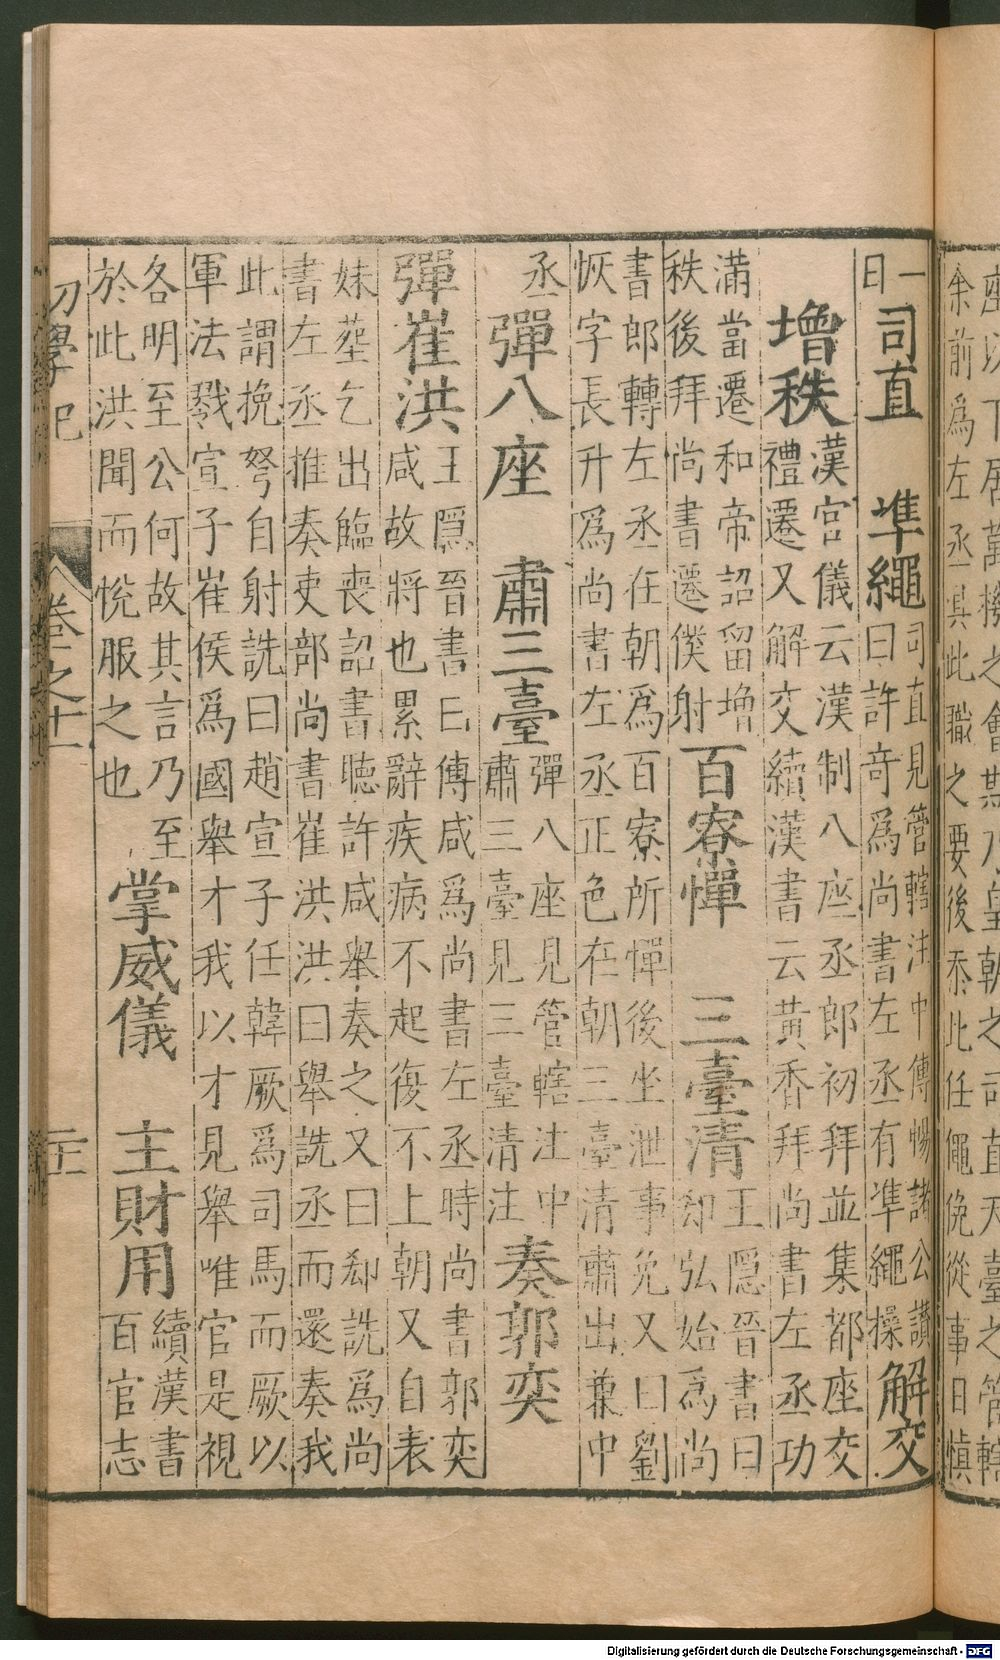 座以下居萬機之會斯乃皇朝之司直天臺之管轄
余前爲左丞具此職之要後忝此任僶俛從事日慎
一
日
司直 準繩
司直見管轄注中傅暢諸公讚
曰許竒爲尚書左丞有準繩操
解交
增秩
漢官儀云漢制八座丞郎初拜並集都座交
禮遷又解交續漢書云黄香拜尚書左丞功
滿當遷和帝詔留增
秩後拜尚書遷僕射
百寮憚 三臺清
王隱晉書曰
却弘始爲尚
書郎轉左丞在朝爲百寮所憚後坐泄事免又曰劉
恢字長升爲尚書左丞正色在朝三臺清肅出兼中
丞
彈八座 肅三臺
彈八座見管轄注中
肅三臺見三臺清注
奏郭奕
彈崔洪
王隱晉書曰傅咸爲尚書左丞時尚書郭奕
咸故將也累辭疾病不起復不上朝又自表
妹塟乞出臨喪詔書聴許咸舉奏之又曰郄詵爲尚
書左丞推奏吏部尚書崔洪洪曰舉詵丞而還奏我
此謂挽弩自射詵曰趙宣子任韓厥爲司馬而厥以
軍法戮宣子崔侯爲國舉才我以才見舉唯官是視
各明至公何故其言乃至
於此洪聞而悅服之也
掌威儀 主財用
續漢書
百官志
初學記 卷之十一 二十
Digitalisierung gefördert durch die Deutsche Forschungsgemeinschaft - DFG